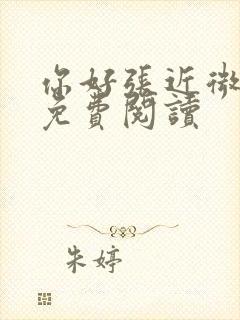 你好張近微
免費閱讀
朱婷